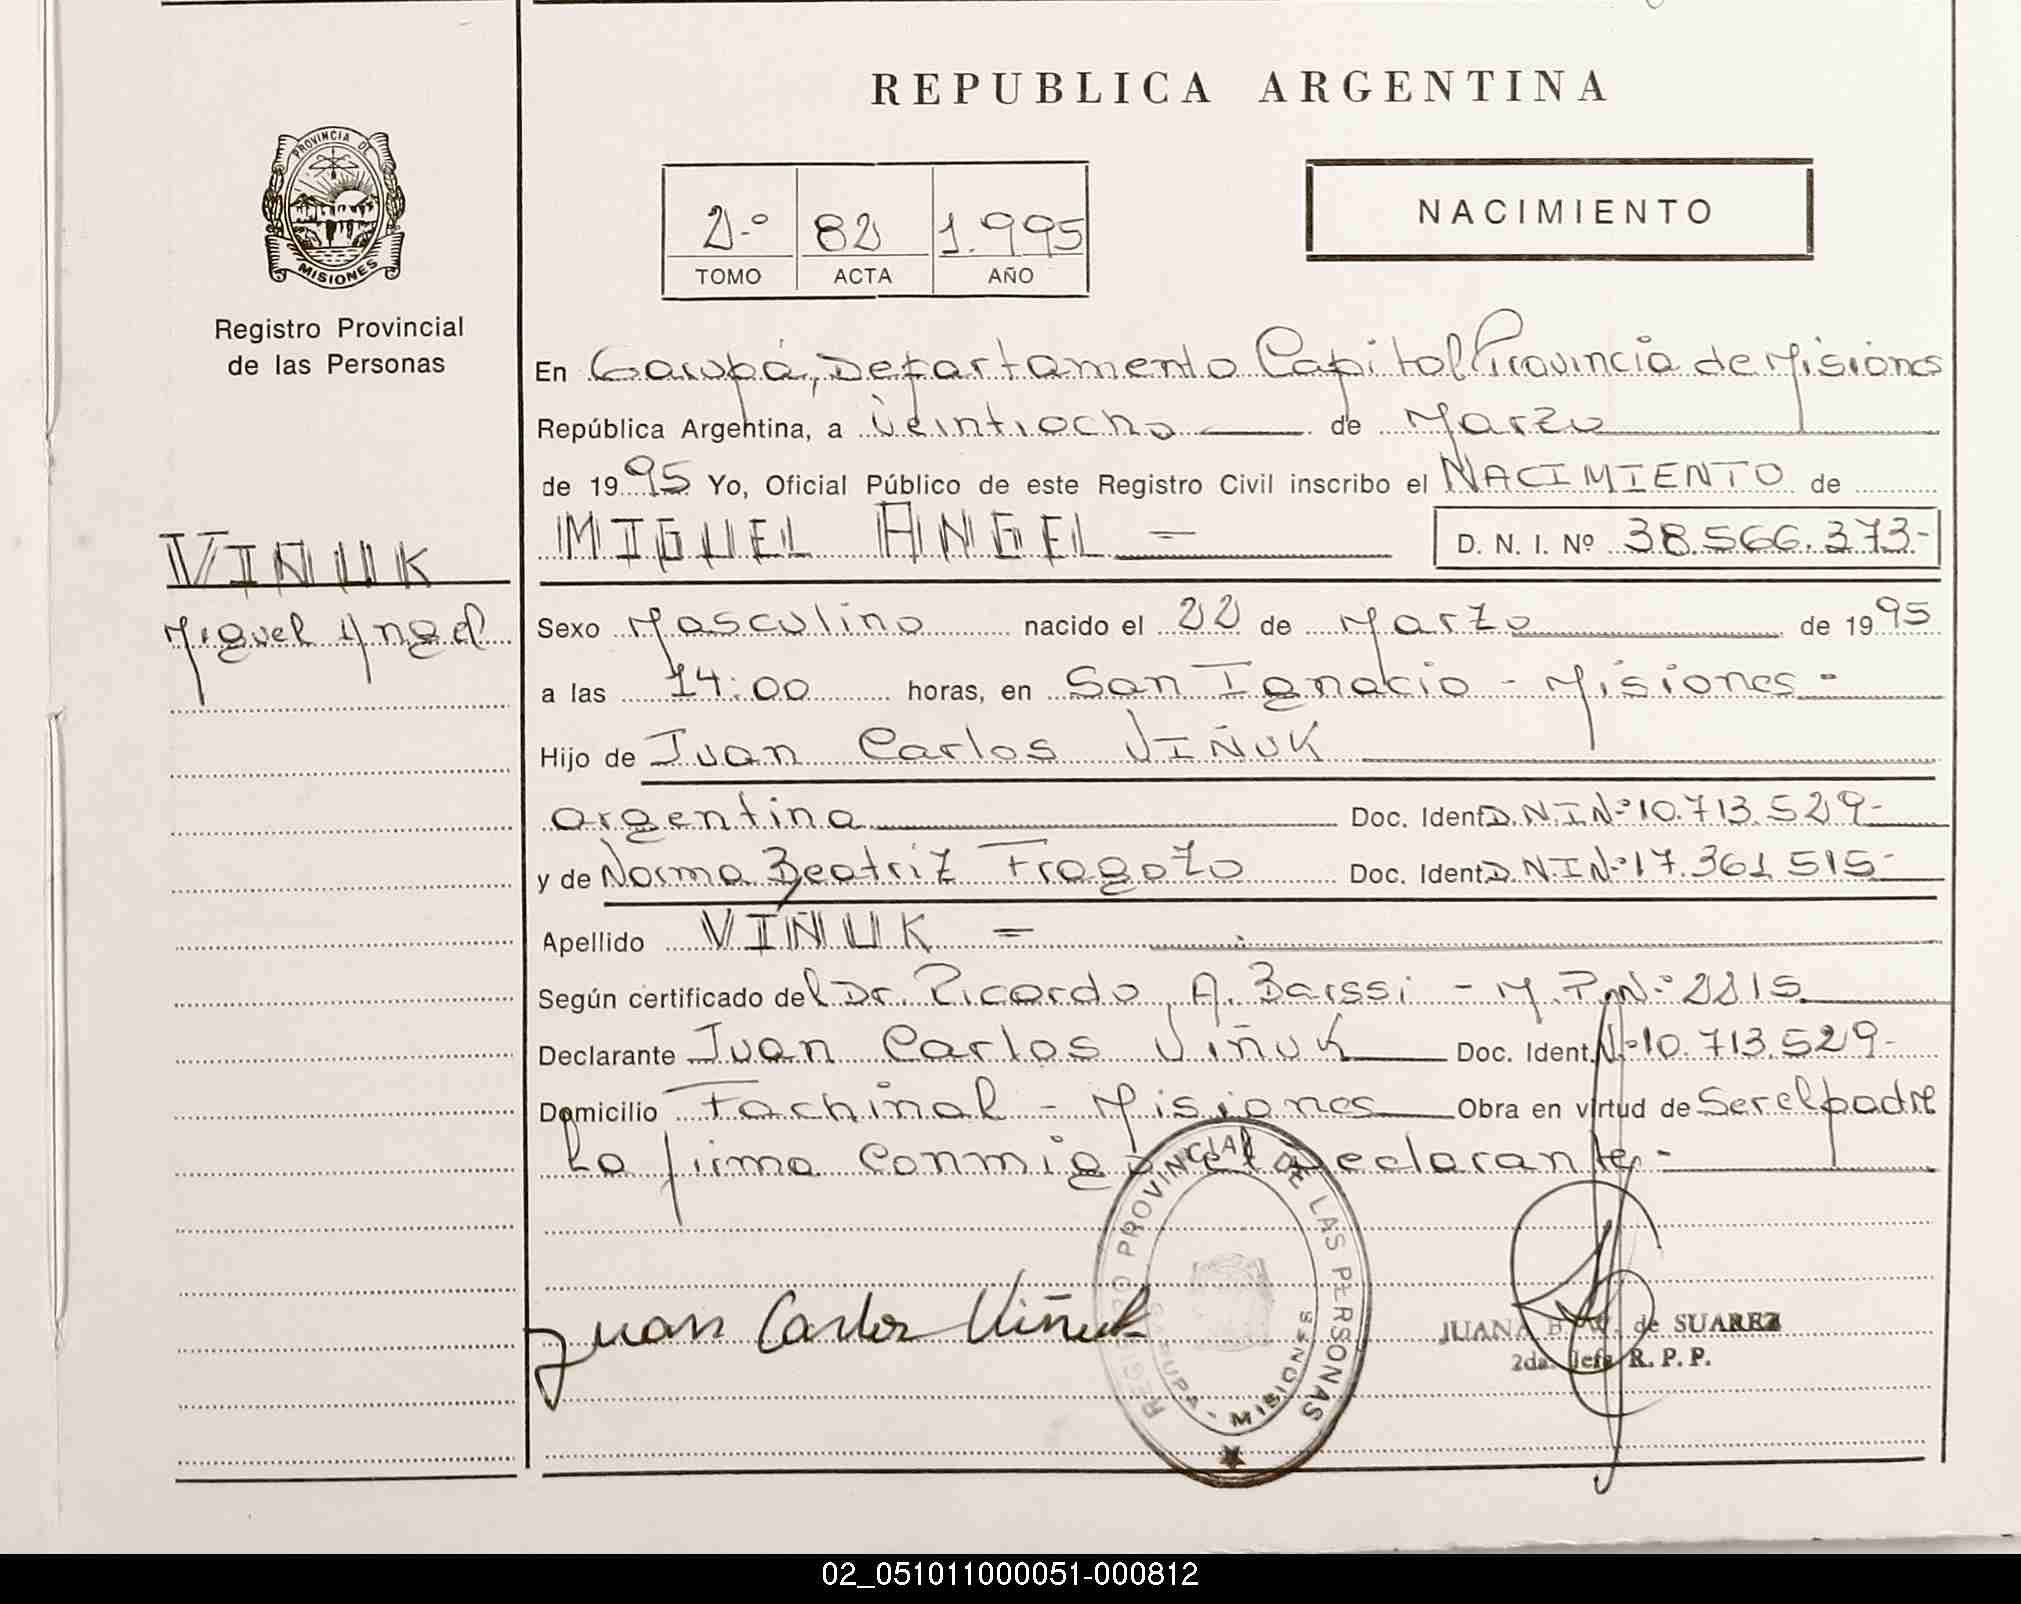 REPUBLICA ARGENTINA
PROVINCIA DE
MISIONES
Registro Provincial
de las Personas
2º 82 1.995
TOMO ACTA AÑO
NACIMIENTO
En Garupá, Departamento Capital Provincia de Misiones
República Argentina, a Veintiocho de Marzo
de 1995 Yo, Oficial Público de este Registro Civil inscribo el NACIMIENTO de
MIGUEL ANGEL = D. N. I. Nº 38.566.373-
VIÑUK
Miguel Angel
Sexo Masculino nacido el 22 de Marzo de 1995
a las 14:00 horas, en San Ignacio - Misiones -
Hijo de Juan Carlos VIÑUK
argentina Doc. Ident. D.N.I Nº 10.713.529-
y de Norma Beatriz Fragozo Doc. Ident. D.N.I Nº 17.361.515-
Apellido VIÑUK =
Según certificado del Dr. Ricardo A. Barssi - M.P. Nº 2215
Declarante Juan Carlos Viñuk Doc. Ident. Nº 10.713.529-
Domicilio Fachinal - Misiones Obra en virtud de Ser el padre
La firma Conmigo el Declarante.-
REGISTRO PROVINCIAL DE LAS PERSONAS
GARUPA - MISIONES
Juan Carlos Viñuk
JUANA de SUAREZ
2da. Jefa R. P. P.
02_051011000051-000812